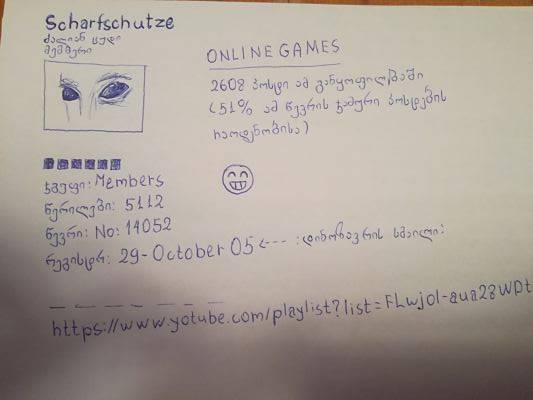 Scharfschutze
ძალიან ცუდი
მემბერი
ONLINE GAMES
2608 პოსტი ამ განყოფილებაში
(51% ამ წევრის ჯამური პოსტების
რაოდენობისა)
ჯგუფი: Members
წერილები: 5112
წევრი: No: 14052
რეგისტრ: 29-October 05 <--- :დინოზავრის სმაილი:
https://www.yotube.com/playlist?list=FLwjol-aua28WDt